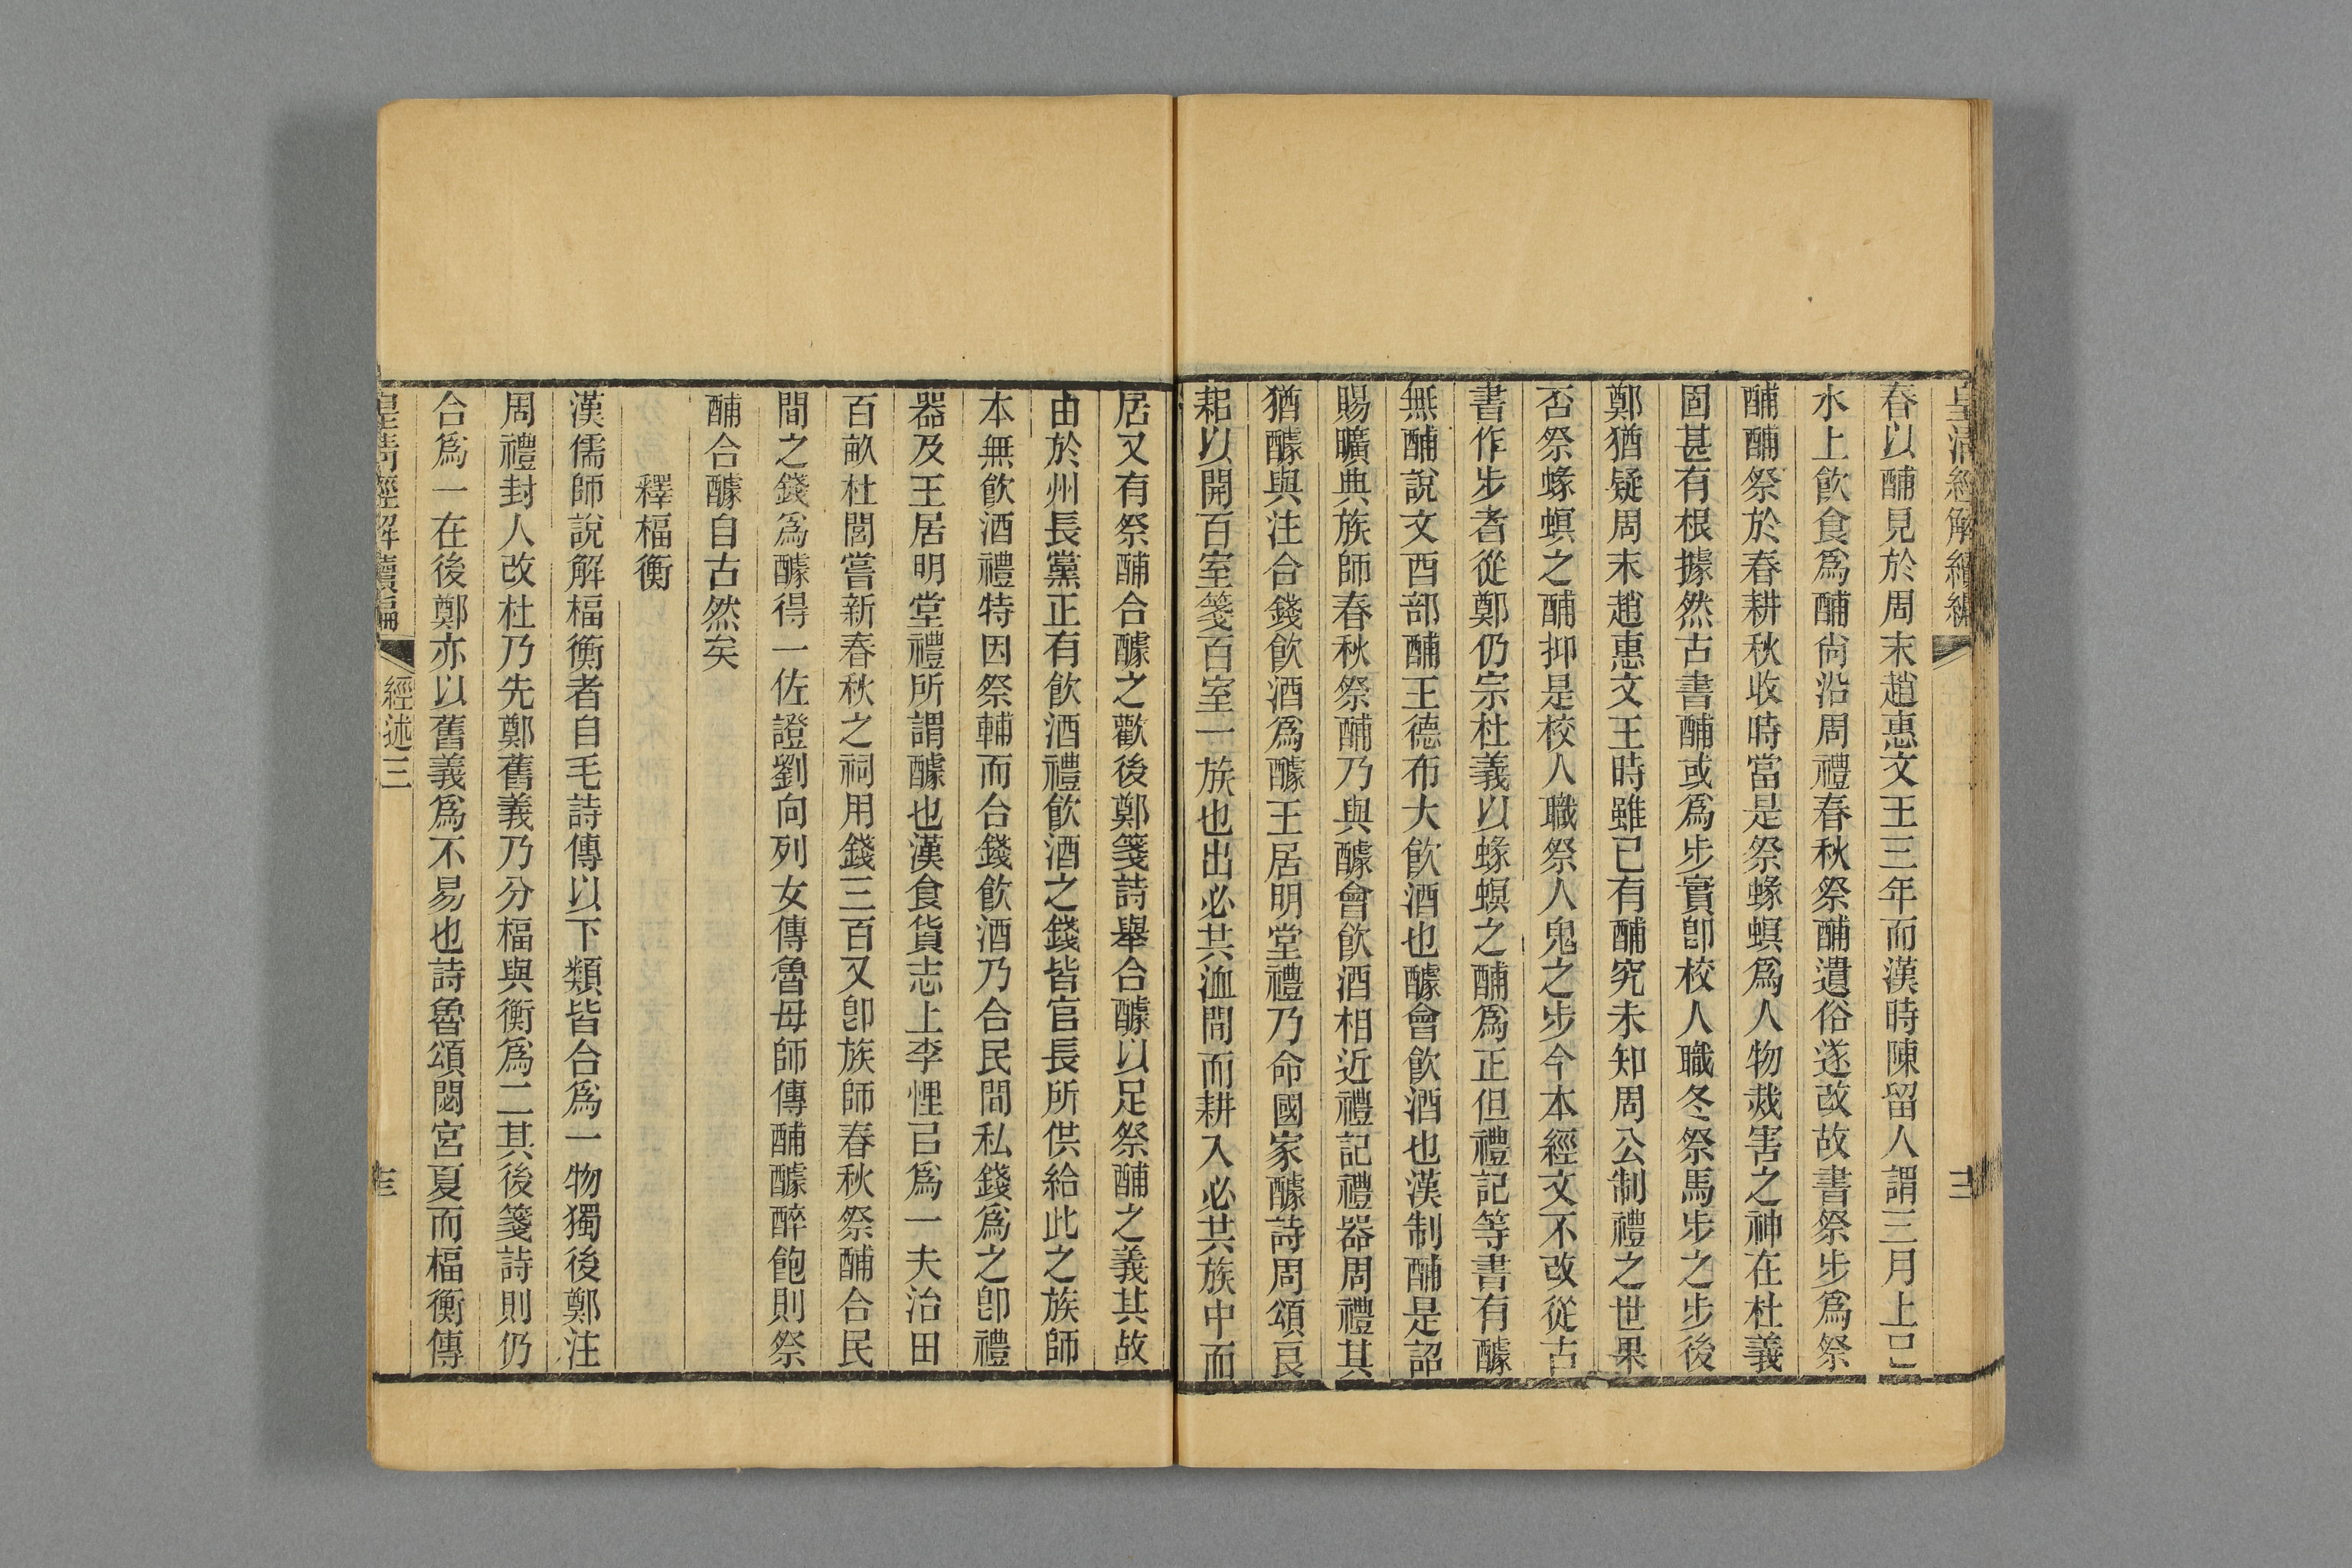 皇清經解續編
三
春以酺見於周末趙惠文王三年而漢時陳留人謂三月上巳
水上飮食爲酺尙沿周禮春秋祭酺遺俗遂改故書祭步爲祭
酺酺祭於春耕秋收時當是祭蝝螟爲人物烖害之神在杜義
固甚有根據然古書酺或爲步實卽校人職冬祭馬步之步後
鄭猶疑周末趙惠文王時雖已有酺究未知周公制禮之世果
否祭蝝螟之酺抑是校人職祭人鬼之步今本經文不改從古
書作步者從鄭仍宗杜義以蝝螟之酺爲正但禮記等書有醵
無酺說文酉部酺王德布大飮酒也醵會飮酒也漢制酺是詔
賜曠典族師春秋祭酺乃與醵會飮酒相近禮記禮器周禮其
猶醵與注合錢飮酒爲醵王居明堂禮乃命國家醵詩周頌良
耜以開百室箋百室一族也出必共洫間而耕入必共族中而
居又有祭酺合醵之歡後鄭箋詩舉合醵以足祭酺之義其故
由於州長黨正有飮酒禮飮酒之錢皆官長所供給此之族師
本無飮酒禮特因祭酺而合錢飮酒乃合民間私錢爲之卽禮
器及王居明堂禮所謂醵也漢食貨志上李悝已爲一夫治田
百畝杜閭嘗新春秋之祠用錢三百又卽族師春秋祭酺合民
間之錢爲醵得一佐證劉向列女傳魯母師傳酺醵醉飽則祭
酺合醵自古然矣
釋楅衡
漢儒師說解楅衡者自毛詩傳以下類皆合爲一物獨後鄭注
周禮封人改杜乃先鄭舊義乃分楅與衡爲二其後箋詩則仍
合爲一在後鄭亦以舊義爲不易也詩魯頌閟宮夏而楅衡傳
皇清經解續編
經述三
三